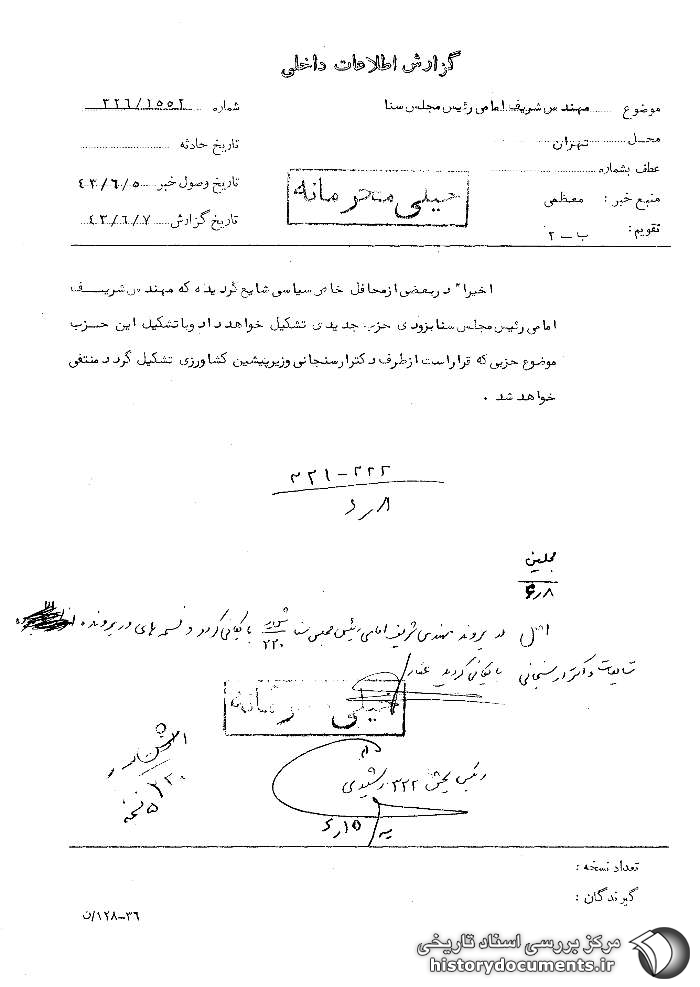 گزارش اطلاعات داخلی
موضوع مهندس شریف امامی رئیس مجلس سنا
شماره ۳۲۶/۱۵۵۲
محل تهران
تاریخ حادثه
عطف بشماره
منبع خبر : معظمی
تاریخ وصول خبر ۴۳/۶/۵
تقویم : ب-۲
تاریخ گزارش ۴۳/۶/۷
خیلی محرمانه
اخیرا" در بعضی از محافل خاص سیاسی شایع گردیده که مهندس شریف
امامی رئیس مجلس سنا بزودی حزب جدیدی تشکیل خواهد داد و با تشکیل این حزب
موضوع حزبی که قرار است از طرف دکتر ارسنجانی وزیر پیشین کشاورزی تشکیل گردد منتفی
خواهد شد .
۳۲۱-۳۲۲
مجلسین
۶/۸
اصل در پرونده مهندس شریف امامی رئیس مجلس سنا بایگانی گردد و نسخه های در پرونده
شایعات و دکتر ارسنجانی بایگانی گردید
خیلی محرمانه
رئیس بخش ۳۲۲ رشیدی
۳۲۰
۵ نسخه
تعداد نسخه :
گیرندگان :
۳۶-۱۲۸/ن
مرکز بررسی اسناد تاریخی
historydocuments.ir